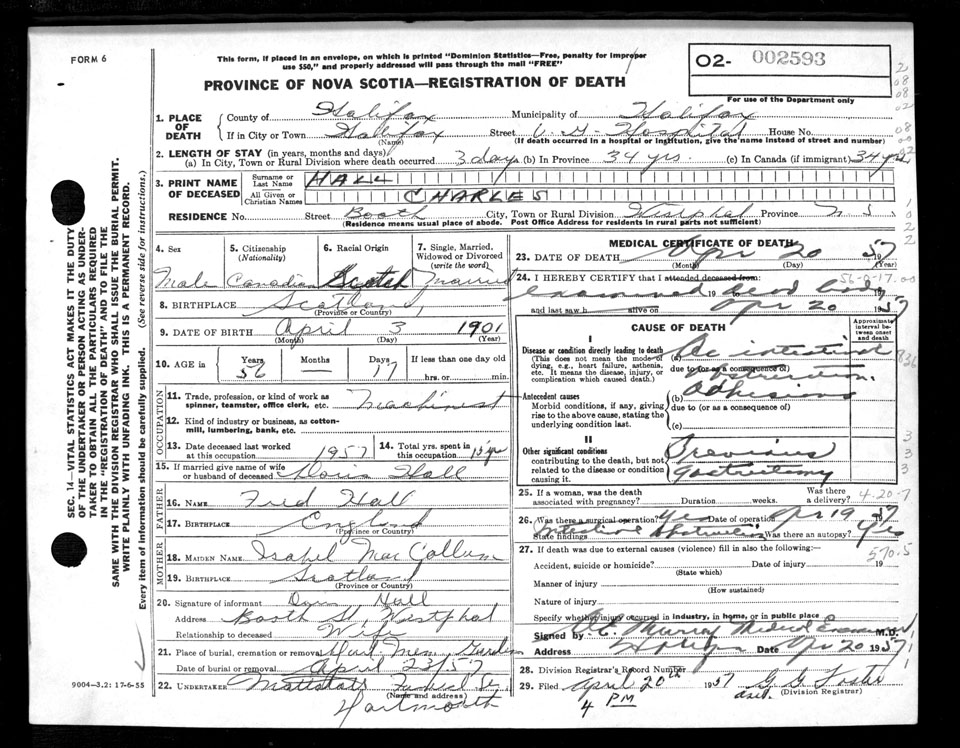 FORM 6
This form, if placed in an envelope, on which is printed "Dominion Statistics—Free, penalty for improper
use $50," and properly addressed will pass through the mail "FREE"
O2- 002593
PROVINCE OF NOVA SCOTIA—REGISTRATION OF DEATH
For use of the Department only
1. PLACE OF DEATH
County of Halifax Municipality of Halifax
If in City or Town Halifax Street V. G. Hospital House No.
(Name) (If death occurred in a hospital or institution, give the name instead of street and number)
2. LENGTH OF STAY (in years, months and days)
(a) In City, Town or Rural Division where death occurred 3 days (b) In Province 34 yrs. (c) In Canada (if immigrant) 34 yrs
3. PRINT NAME OF DECEASED
Surname or Last Name HALL
All Given or Christian Names CHARLES
RESIDENCE No. Street Booth City, Town or Rural Division Westphal Province N. S.
(Residence means usual place of abode. Post Office Address for residents in rural parts not sufficient)
4. Sex
Male
5. Citizenship (Nationality)
Canadian
6. Racial Origin
Scotch
7. Single, Married, Widowed or Divorced (write the word)
Married
8. BIRTHPLACE Scotland
(Province or Country)
9. DATE OF BIRTH April 3 1901
(Month) (Day) (Year)
10. AGE in Years 56 Months — Days 17 If less than one day old
hrs. or min.
OCCUPATION
11. Trade, profession, or kind of work as
spinner, teamster, office clerk, etc. Machinest
12. Kind of industry or business, as cotton-
mill, lumbering, bank, etc.
13. Date deceased last worked
at this occupation 1957
14. Total yrs. spent in
this occupation 15 yrs
15. If married give name of wife
or husband of deceased Doris Hall
FATHER
16. NAME Fred Hall
17. BIRTHPLACE England
(Province or Country)
MOTHER
18. MAIDEN NAME Isabel MacCallum
19. BIRTHPLACE Scotland
(Province or Country)
20. Signature of informant Hall
Address Booth St, Westphal
Relationship to deceased Wife
21. Place of burial, cremation or removal Dart. Mem. Gardens
Date of burial or removal April 23/57
22. UNDERTAKER Mattatall Funeral
(Name and address)
Dartmouth
MEDICAL CERTIFICATE OF DEATH
23. DATE OF DEATH Apr 20 1957
(Month) (Day) (Year)
24. I HEREBY CERTIFY that I attended deceased from:
56-0-17.00
examined 19 dead body 19
and last saw h alive on Apr 20 1957
CAUSE OF DEATH
Approximate interval between onset and death
I
Disease or condition directly leading to death
(This does not mean the mode of
dying, e.g., heart failure, asthenia,
etc. It means the disease, injury, or
complication which caused death.)
(a) Ac intestinal
due to (or as a consequence of)
obstruction
Antecedent causes
Morbid conditions, if any, giving
rise to the above cause, stating the
underlying condition last.
(b) Adhesions
due to (or as a consequence of)
(c)
II
Other significant conditions
contributing to the death, but not
related to the disease or condition
causing it.
Previous
gastrectomy
25. If a woman, was the death
associated with pregnancy? Duration weeks. Was there a delivery?
4-20-7
26. Was there a surgical operation? yes Date of operation Apr 19 1957
State findings Intestinal obstruction Was there an autopsy? yes
27. If death was due to external causes (violence) fill in also the following:—
570.5
Accident, suicide or homicide? Date of injury 19
(State which)
Manner of injury
(How sustained)
Nature of injury
Specify whether injury occurred in industry, in home, or in public place
Signed by Murray Medical Examiner M.D.
Address Halifax Date Apr 20 1957
28. Division Registrar's Record Number
29. Filed April 20th 1957 G. G. Foster
4 PM (Division Registrar)
SEC. 14—VITAL STATISTICS ACT MAKES IT THE DUTY
OF THE UNDERTAKER OR PERSON ACTING AS UNDER-
TAKER TO OBTAIN ALL THE PARTICULARS REQUIRED
IN THE "REGISTRATION OF DEATH" AND TO FILE THE
SAME WITH THE DIVISION REGISTRAR WHO SHALL ISSUE THE BURIAL PERMIT.
WRITE PLAINLY WITH UNFADING INK. THIS IS A PERMANENT RECORD.
Every item of information should be carefully supplied. (See reverse side for instructions.)
9004-3.2: 17-6-55